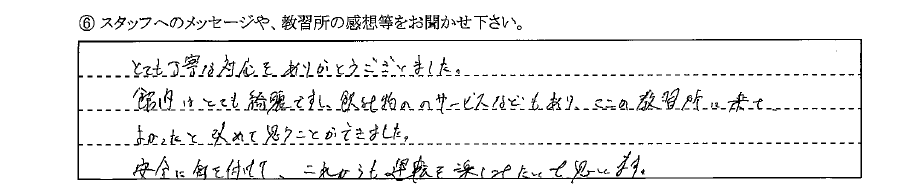 ⑥ スタッフへのメッセージや、教習所の感想等をお聞かせ下さい。
とても丁寧な対応をありがとうございました。
館内はとても綺麗ですし、飲み物のサービスなどもあり、ここの教習所に来て
よかったと改めて思うことができました。
安全に気を付けて、これからも運転を楽しみたいと思います。